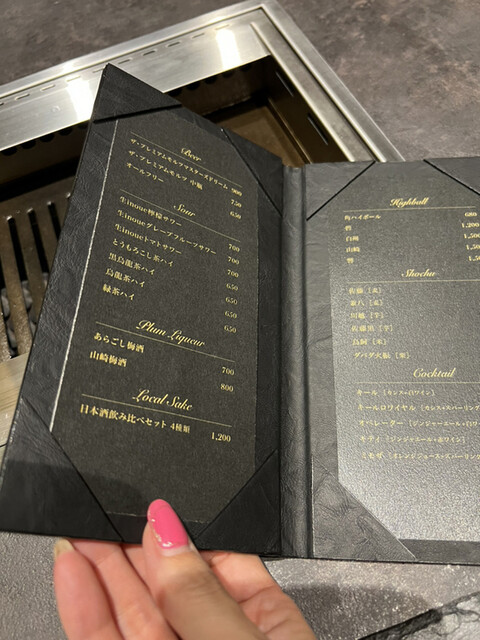 Beer
ザ・プレミアムモルツマスターズドリーム 900
ザ・プレミアムモルツ 中瓶 750
オールフリー 650
Sour
生inoue檸檬サワー 700
生inoueグレープフルーツサワー 700
生inoueトマトサワー 700
とうもろこし茶ハイ 650
黒烏龍茶ハイ 650
烏龍茶ハイ 650
緑茶ハイ 650
Plum Liqueur
あらごし梅酒 700
山崎梅酒 800
Local Sake
日本酒飲み比べセット 4種類 1,200
Highball
角ハイボール 680
碧 1,200
白州 1,500
山崎 1,500
響 1,50
Shochu
佐藤 [麦]
兼八 [麦]
川越 [芋]
佐藤黒 [芋]
鳥飼 [米]
ダバダ火振 [栗]
Cocktail
キール [カシス×白ワイン]
キールロワイヤル [カシス×スパーリング
オペレーター [ジンジャーエール×白ワ
キティ [ジンジャーエール×赤ワイン]
ミモザ [オレンジジュース×スパーリング